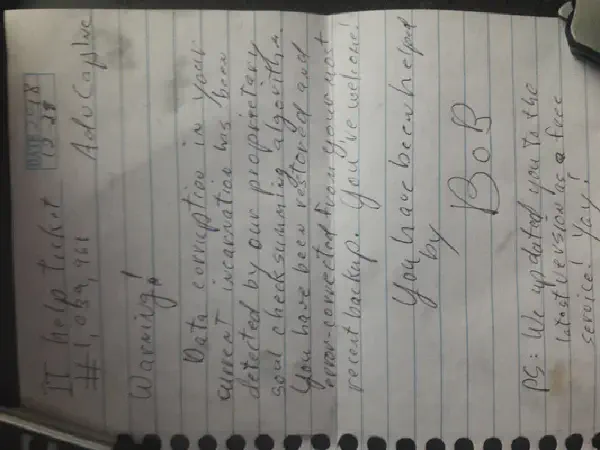 IT help ticket
#1,039,961
AdvCapInc
Warning!
Data corruption in your
current incarnation has been
detected by our proprietary
soul checksumming algorithm.
You have been restored and
error-corrected from your most
recent backup. You're welcome!
You have been helped
by
BoB
PS: We updated you to the
latest version as a free
service! Yay!